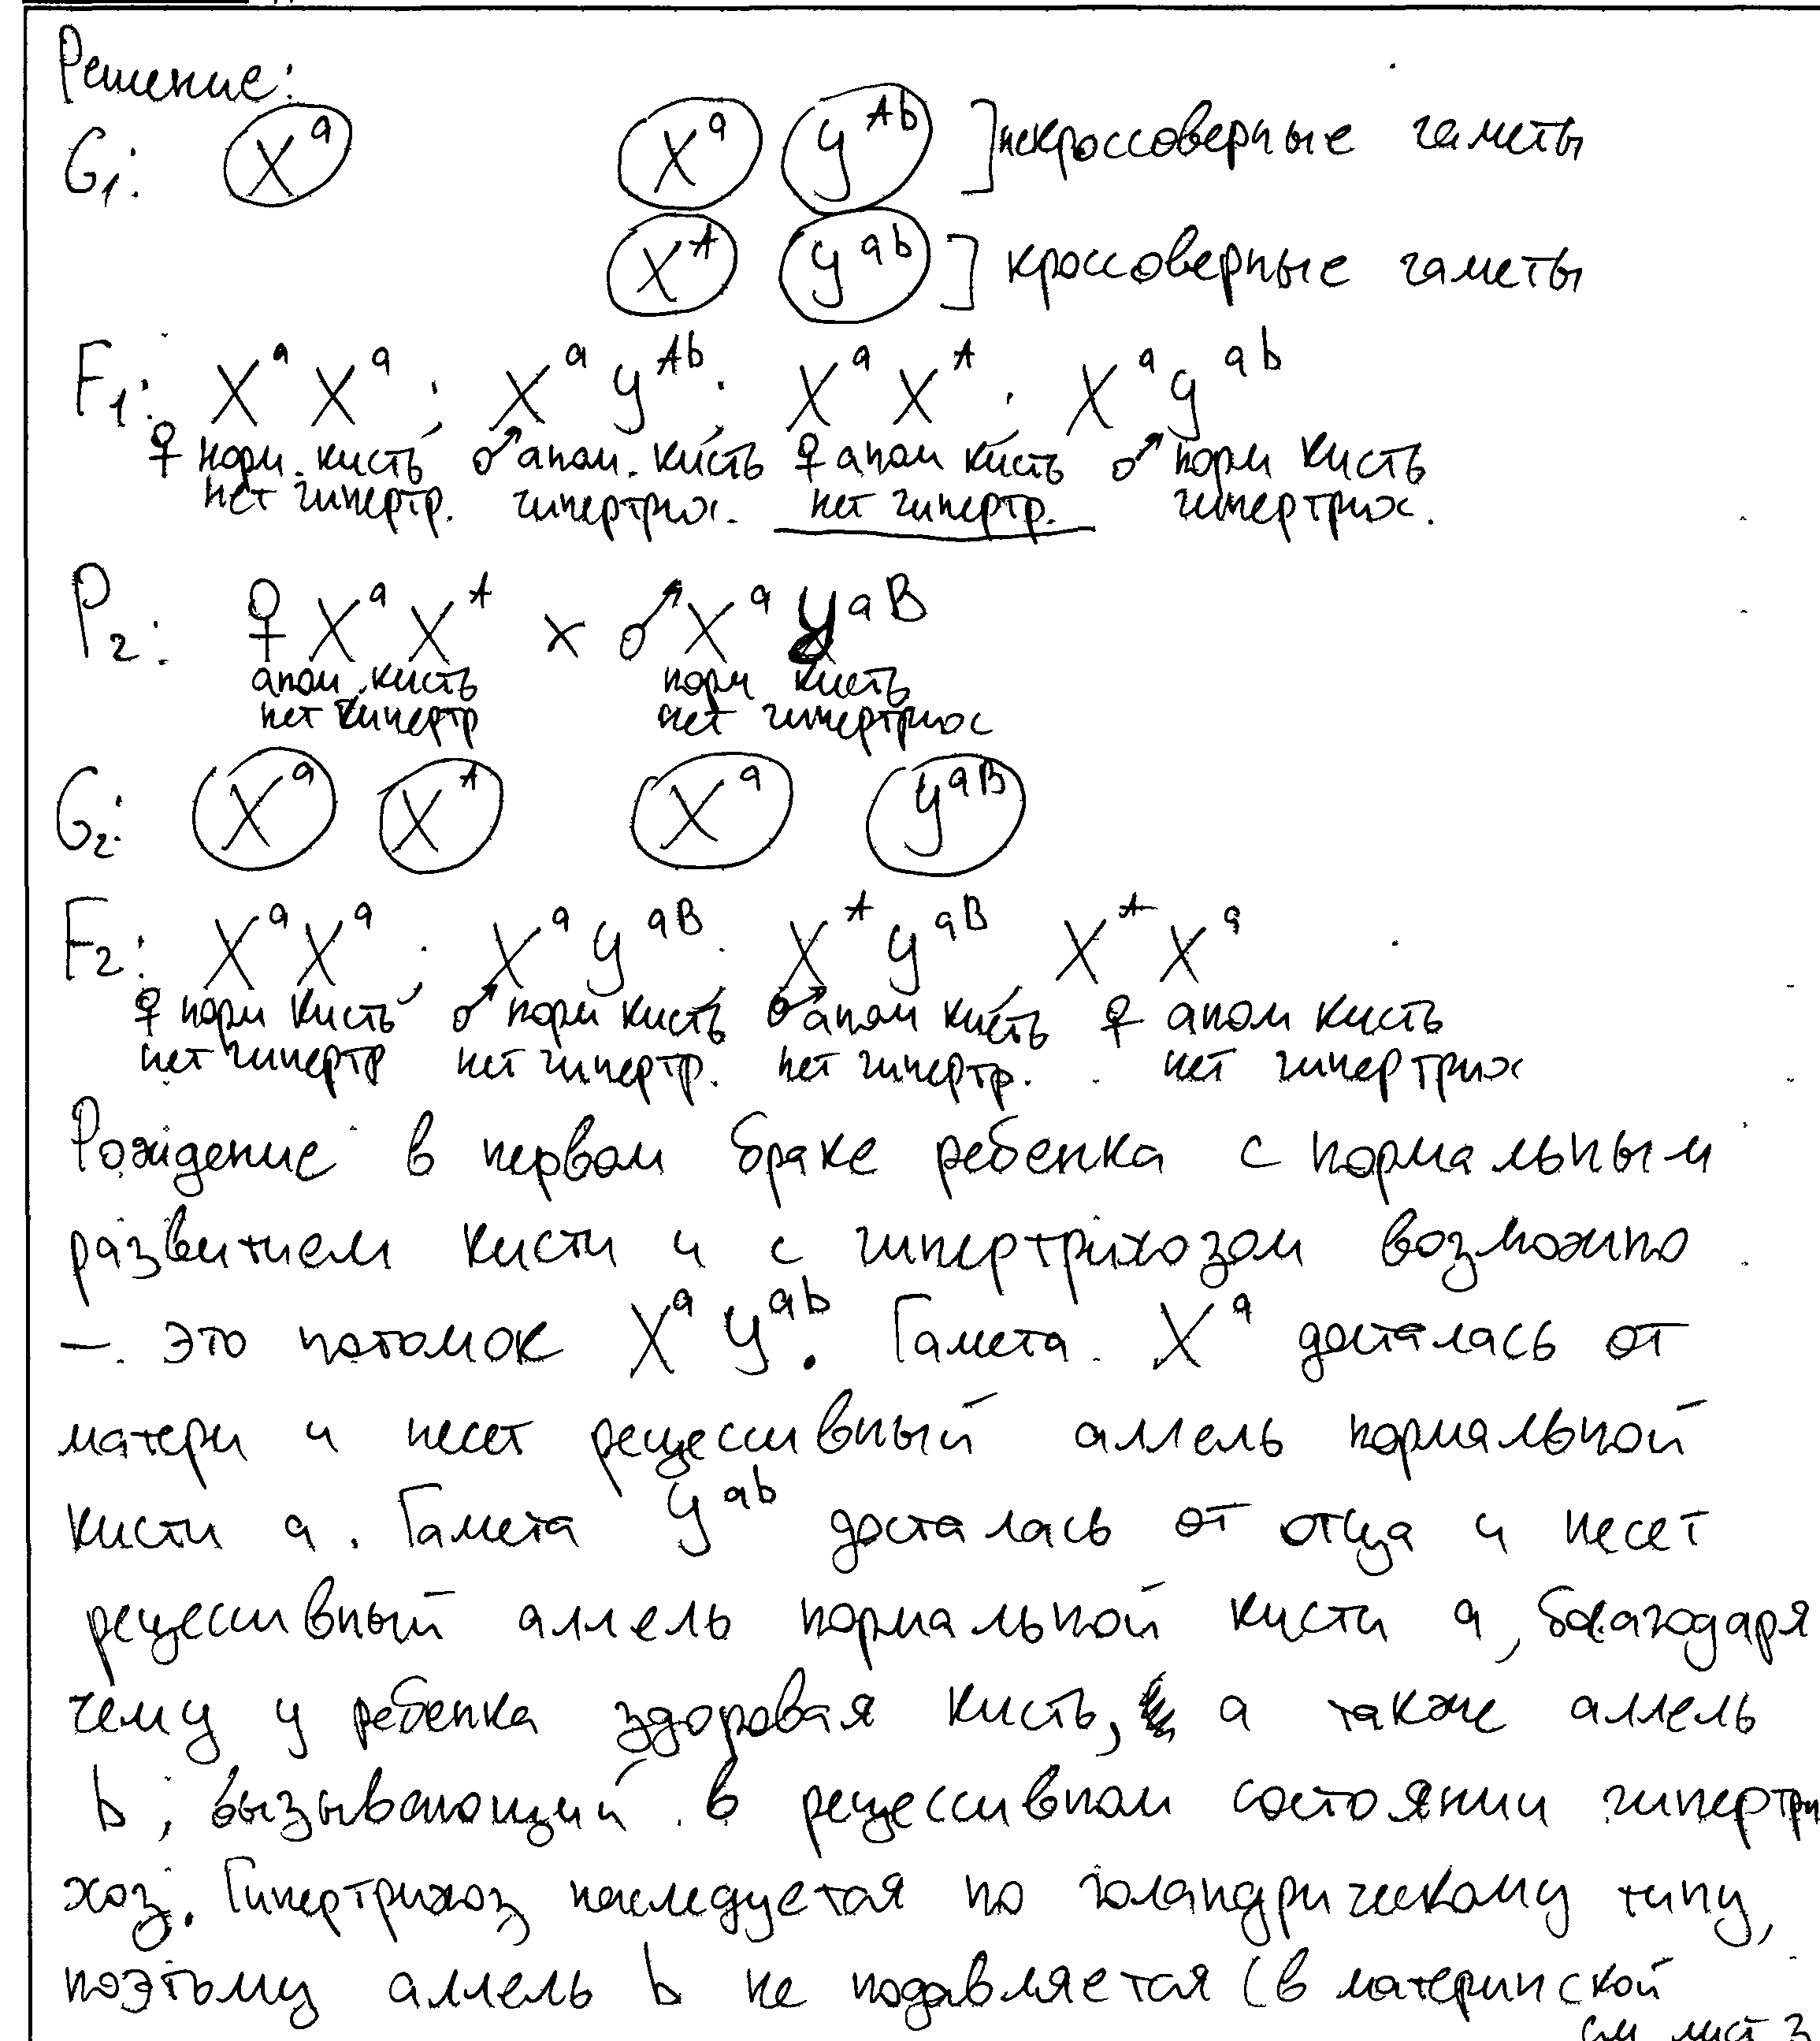 Решение:
G₁: Xᵃ Xᵃ yᴬᵇ ] некроссоверные гаметы
Xᴬ yᵃᵇ ] кроссоверные гаметы
F₁: XᵃXᵃ ; Xᵃyᴬᵇ ; XᵃXᴬ ; Xᵃyᵃᵇ
♀ норм. кисть ♂ аном. кисть ♀ аном кисть ♂ норм кисть
нет гипертр. гипертрих. нет гипертр. гипертрих.
P₂: ♀ XᵃXᴬ x ♂ Xᵃyᵃᴮ
аном. кисть норм кисть
нет гипертр нет гипертрих
G₂: Xᵃ Xᴬ Xᵃ yᵃᴮ
F₂: XᵃXᵃ ; Xᵃyᵃᴮ ; Xᴬyᵃᴮ , XᴬXᵃ
♀ норм кисть ♂ норм кисть ♂ аном кисть ♀ аном кисть
нет гипертр нет гипертр. нет гипертр. нет гипертрих
Рождение в первом браке ребенка с нормальным
развитием кисти и с гипертрихозом возможно
– это потомок Xᵃyᵃᵇ. Гамета Xᵃ досталась от
матери и несет рецессивный аллель нормальной
кисти a. Гамета yᵃᵇ досталась от отца и несет
рецессивный аллель нормальной кисти a, благодаря
чему у ребенка здоровая кисть, а также аллель
b, вызывающий в рецессивном состоянии гипертри
хоз. Гипертрихоз наследуется по голандрическому типу,
поэтому аллель b не подавляется (в материнской
см лист 3